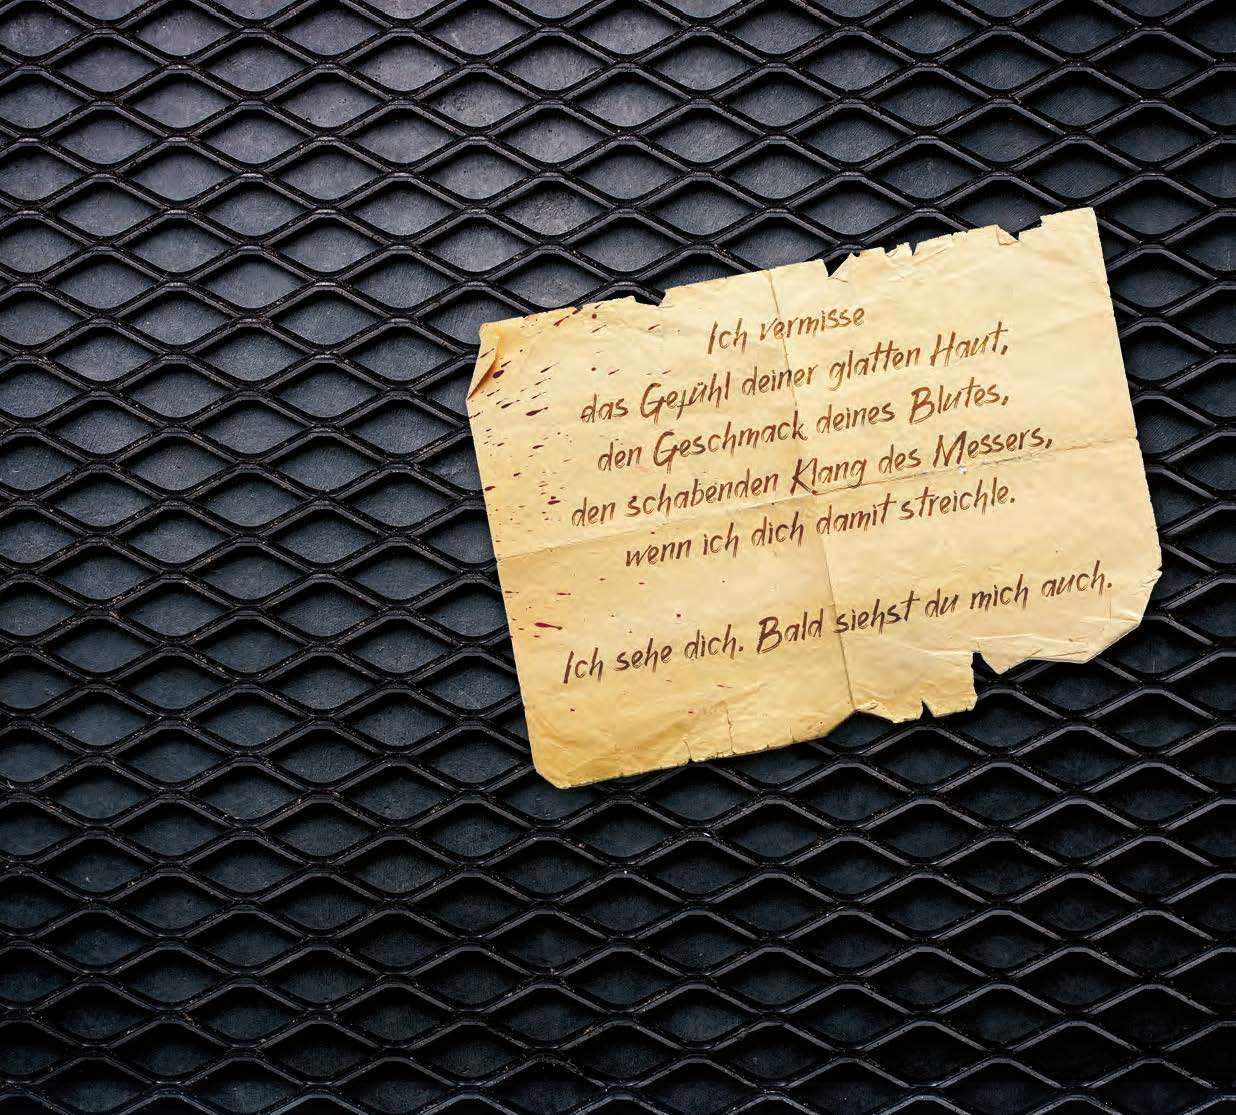 Ich vermisse
das Gefühl deiner glatten Haut,
den Geschmack deines Blutes,
den schabenden Klang des Messers,
wenn ich dich damit streichle.
Ich sehe dich. Bald siehst du mich auch.